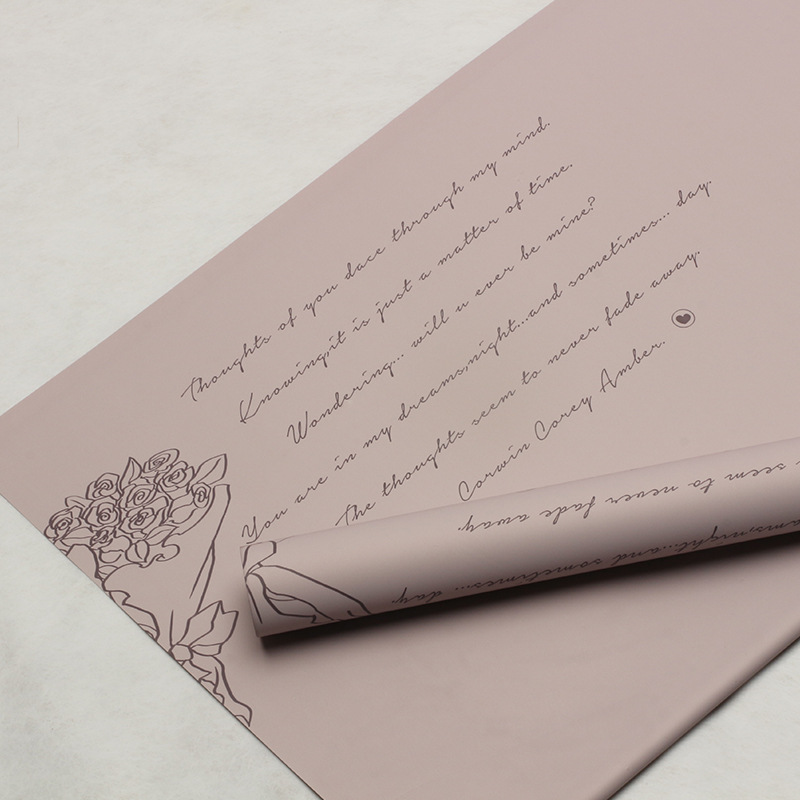 Thoughts of you dace through my mind.
Knowing,it is just a matter of time.
Wondering... will u ever be mine?
You are in my dreams,night...and sometimes... day.
The thoughts seem to never fade away.
Corwin Corey Amber.
seem to never fade away.
ams,night...and sometimes... day.